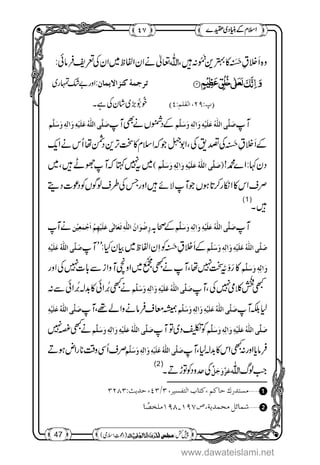 اسلام کے بنیادی عقیدے ٤٧
وہ اَخلاقِ حَسَنہ کا بہترین نمونہ ہیں، اللہ تعالیٰ نے ان کی ان الفاظ میں تعریف فرمائی:
وَ اِنَّكَ لَعَلٰى خُلُقٍ عَظِیْمٍ ترجمۂ کنز الایمان: اور بے شک تمہاری
(پ:٢٩، القلم:٤) خُوبُو بڑی شان کی ہے۔
آپ صَلَّی اللّٰهُ عَلَیْهِ وَاٰلِهٖ وَسَلَّم کے دشمنوں نے بھی آپ صَلَّی اللّٰهُ عَلَیْهِ وَاٰلِهٖ وَسَلَّم
کے اَخلاقِ حَسَنہ کی تصدیق کی، ابوجہل جو کہ اسلام کا سخت ترین دشمن تھا اُس نے ایک
دن کہا: اے محمد! (صَلَّی اللّٰهُ عَلَیْهِ وَاٰلِهٖ وَسَلَّم) میں یہ نہیں کہتا کہ آپ جھوٹے ہیں، میں
صرف اس کا انکار کرتا ہوں جو آپ لائے ہیں اور جس کی طرف لوگوں کو دعوت دیتے
ہیں۔ (1)
آپ صَلَّی اللّٰهُ عَلَیْهِ وَاٰلِهٖ وَسَلَّم کے صحابہ رِضْوَانُ اللّٰهِ تَعَالٰی عَلَیْهِمْ اَجْمَعِیْن نے آپ
صَلَّی اللّٰهُ عَلَیْهِ وَاٰلِهٖ وَسَلَّم کے اَخلاقِ حَسَنہ کو ان الفاظ میں بیان کیا: ’’آپ صَلَّی اللّٰهُ عَلَیْهِ
وَاٰلِهٖ وَسَلَّم کا رَوَیّہ سخت نہیں تھا، آپ نے کبھی مجمع میں اونچی آواز سے بات نہیں کی اور
کبھی فحش کلامی نہیں کی، آپ صَلَّی اللّٰهُ عَلَیْهِ وَاٰلِهٖ وَسَلَّم نے کبھی بُرائی کا بدلہ بُرائی سے نہ
لیا بلکہ آپ صَلَّی اللّٰهُ عَلَیْهِ وَاٰلِهٖ وَسَلَّم ہمیشہ معاف فرمانے والے تھے، آپ صَلَّی اللّٰهُ عَلَیْهِ
وَاٰلِهٖ وَسَلَّم کو تکلیف دی تو آپ صَلَّی اللّٰهُ عَلَیْهِ وَاٰلِهٖ وَسَلَّم نے کبھی غصہ نہیں
فرمایا اور نہ ہی کبھی اس کا بدلہ لیا، آپ صَلَّی اللّٰهُ عَلَیْهِ وَاٰلِهٖ وَسَلَّم صرف اُسی وقت ناراض ہوتے
جب لوگ اللہ عَزَّوَجَلَّ کی حدود کو توڑتے۔ (2)
1 مستدرک حاکم، کتاب التفسیر، ٤٣/٣، حدیث: ٣٢٨٣
2 شمائل محمدیة، ص١٩٧-١٩٨ ملخصًا
47 پیش کش: مجلس (دعوتِ اسلامی)
www.dawateislami.net